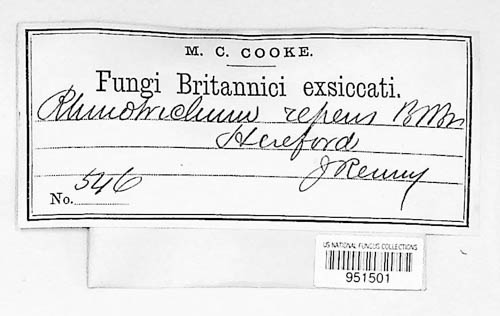 M. C. COOKE.
Fungi Britannici exsiccati.
Rhinotrichum repens B&Br
Hereford
J Renny
No. 546
US NATIONAL FUNGUS COLLECTIONS
951501